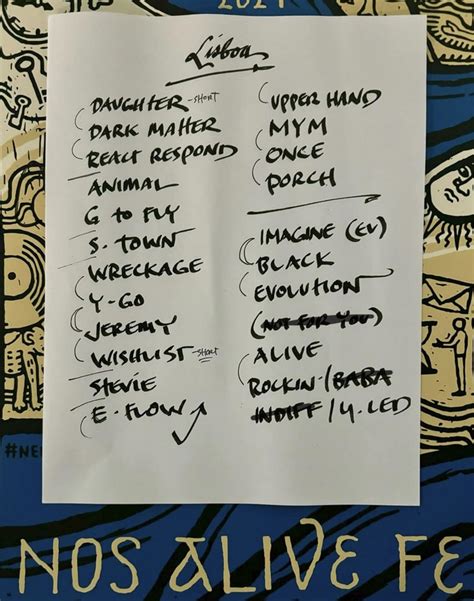 2024
Lisboa
DAUGHTER - SHORT
DARK MATTER
REACT RESPOND
ANIMAL
G TO FLY
S. TOWN
WRECKAGE
Y-GO
JEREMY
WISHLIST - SHORT
STEVIE
E-FLOW
UPPER HAND
MYM
ONCE
PORCH
IMAGINE (EV)
BLACK
EVOLUTION
(NOT FOR YOU)
ALIVE
ROCKIN/BABA
INDIFF/Y-LED
#NE
NOS ALIVE FE